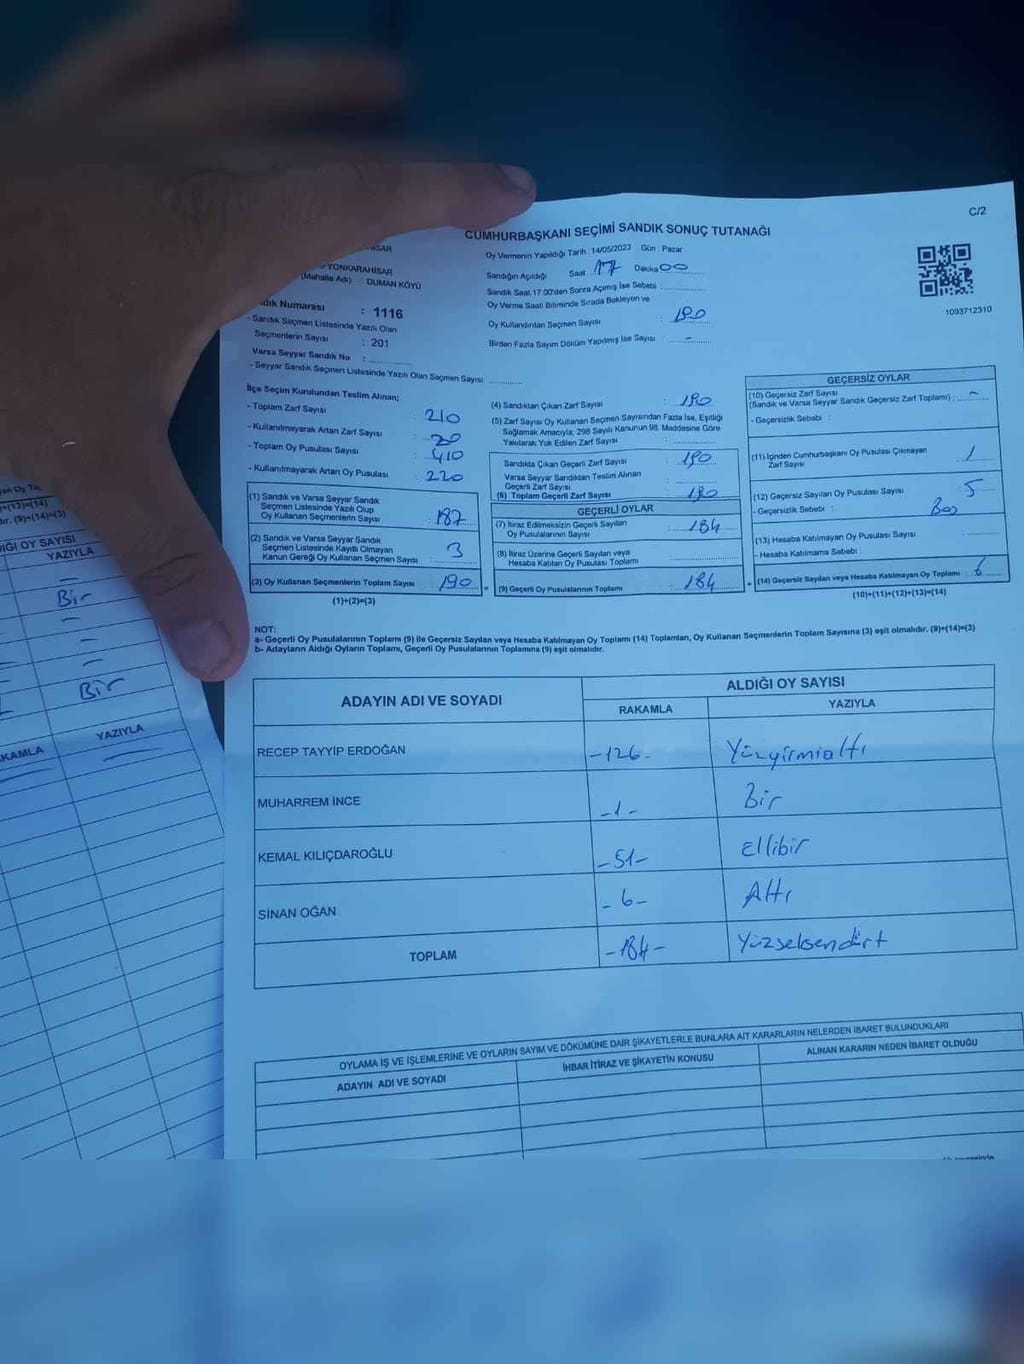 C/2
CUMHURBAŞKANI SEÇİMİ SANDIK SONUÇ TUTANAĞI
(Mahalle Adı) : DUMAN KÖYÜ
Sandık Numarası : 1116
- Sandık Seçmen Listesinde Yazılı Olan
Seçmenlerin Sayısı : 201
Varsa Seyyar Sandık No :
- Seyyar Sandık Seçmen Listesinde Yazılı Olan Seçmen Sayısı
Oy Vermenin Yapıldığı Tarih : 14/05/2023 Gün : Pazar
Sandığın Açıldığı Saat 17 Dakika 00
Sandık Saat 17:00'den Sonra Açılmış İse Sebebi :
Oy Verme Saati Bitiminde Sırada Bekleyen ve
Oy Kullandırılan Seçmen Sayısı : 190
Birden Fazla Sayım Döküm Yapılmış İse Sayısı : -
1093712310
İlçe Seçim Kurulundan Teslim Alınan;
- Toplam Zarf Sayısı : 210
- Kullanılmayarak Artan Zarf Sayısı : 20
- Toplam Oy Pusulası Sayısı : 410
- Kullanılmayarak Artan Oy Pusulası : 220
(1) Sandık ve Varsa Seyyar Sandık
Seçmen Listesinde Yazılı Olup
Oy Kullanan Seçmenlerin Sayısı : 187
(2) Sandık ve Varsa Seyyar Sandık
Seçmen Listesinde Kayıtlı Olmayan
Kanun Gereği Oy Kullanan Seçmen Sayısı : 3
(3) Oy Kullanan Seçmenlerin Toplam Sayısı : 190
(1)+(2)=(3)
(4) Sandıktan Çıkan Zarf Sayısı : 190
(5) Zarf Sayısı Oy Kullanan Seçmen Sayısından Fazla İse, Eşitliği
Sağlamak Amacıyla; 298 Sayılı Kanunun 98. Maddesine Göre
Yakılarak Yok Edilen Zarf Sayısı :
Sandıkta Çıkan Geçerli Zarf Sayısı : 190
Varsa Seyyar Sandıktan Teslim Alınan
Geçerli Zarf Sayısı :
(6) Toplam Geçerli Zarf Sayısı : 190
GEÇERLİ OYLAR
(7) İtiraz Edilmeksizin Geçerli Sayılan
Oy Pusulalarının Sayısı : 184
(8) İtiraz Üzerine Geçerli Sayılan veya
Hesaba Katılan Oy Pusulası Toplamı :
(9) Geçerli Oy Pusulalarının Toplamı : 184
GEÇERSİZ OYLAR
(10) Geçersiz Zarf Sayısı
(Sandık ve Varsa Seyyar Sandık Geçersiz Zarf Toplamı) : -
- Geçersizlik Sebebi :
(11) İçinden Cumhurbaşkanı Oy Pusulası Çıkmayan
Zarf Sayısı : 1
(12) Geçersiz Sayılan Oy Pusulası Sayısı : 5
- Geçersizlik Sebebi : Boş
(13) Hesaba Katılmayan Oy Pusulası Sayısı :
- Hesaba Katılmama Sebebi :
(14) Geçersiz Sayılan veya Hesaba Katılmayan Oy Toplamı : 6
(10)+(11)+(12)+(13)=(14)
NOT:
a- Geçerli Oy Pusulalarının Toplamı (9) ile Geçersiz Sayılan veya Hesaba Katılmayan Oy Toplamı (14) Toplamları, Oy Kullanan Seçmenlerin Toplam Sayısına (3) eşit olmalıdır. (9)+(14)=(3)
b- Adayların Aldığı Oyların Toplamı, Geçerli Oy Pusulalarının Toplamına (9) eşit olmalıdır.
ADAYIN ADI VE SOYADI ALDIĞI OY SAYISI
RAKAMLA YAZIYLA
RECEP TAYYİP ERDOĞAN -126- Yüzyirmialtı
MUHARREM İNCE -1- Bir
KEMAL KILIÇDAROĞLU -51- Ellibir
SİNAN OĞAN -6- Altı
TOPLAM -184- Yüzseksendört
OYLAMA İŞ VE İŞLEMLERİNE VE OYLARIN SAYIM VE DÖKÜMÜNE DAİR ŞİKAYETLERLE BUNLARA AİT KARARLARIN NELERDEN İBARET BULUNDUKLARI
ADAYIN ADI VE SOYADI İHBAR İTİRAZ VE ŞİKAYETİN KONUSU ALINAN KARARIN NEDEN İBARET OLDUĞU
(9)+(14)=(3)
OY SAYISI
YAZIYLA
Bir
Bir
YAZIYLA